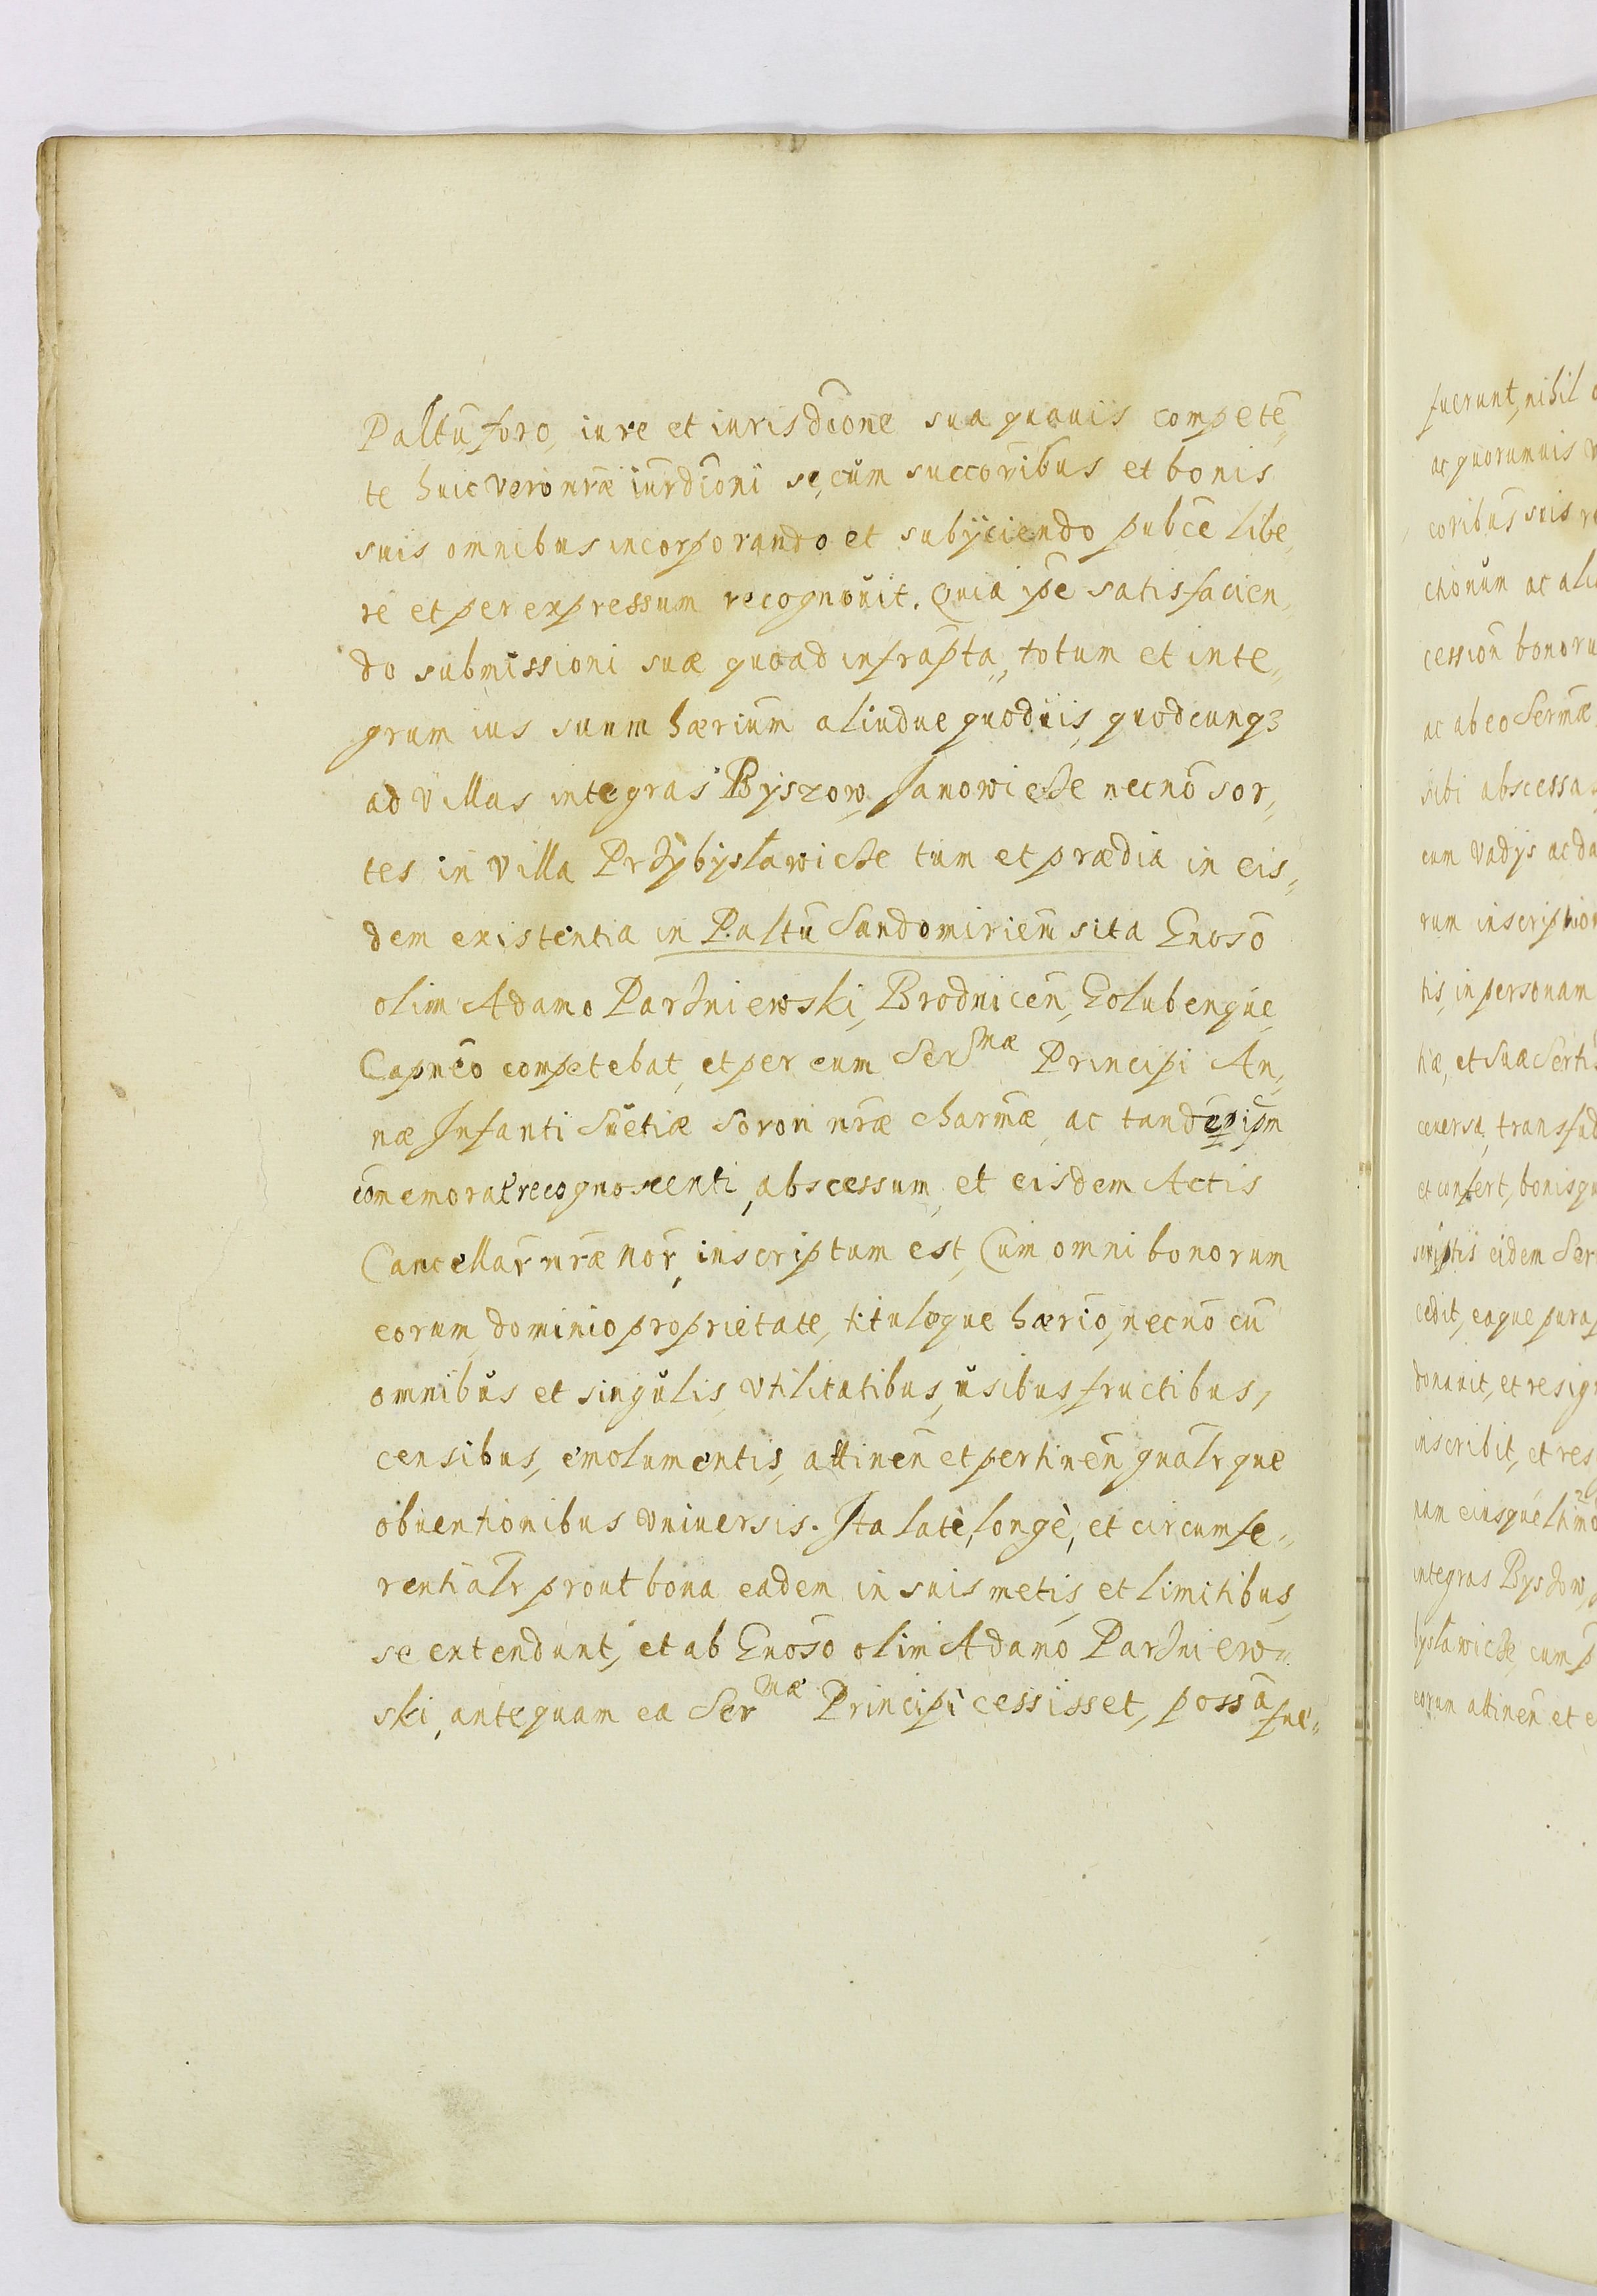 Paltũ, foro, iure et iurisdc̃ione sua quauis competẽ
te huic vero nr̃æ iurdic̃ioni se, cum succor̃ibus et bonis
suis omnibus incorporando et subijciendo pubc̃e libe
re et per expressum recognouit. Quia ip̃e satisfacien
do submissioni suæ quoad infrapt̃a, totum et inte
grum ius suum hær̃ium aliudue quoduis, quodcunqꝫ
ad villas integras Byszow, Janowicze necnõ sor
tes in villa Przybysławicze tum et prædia in eis
dem existentia in Paltũ Sandomirieñ sita Gñoso
olim Adamo Parzniewski, Brodniceñ, Golubenque
Capñeo competebat, et per eum Sermæ Principi An
næ Infanti Suetiæ Sorori nr̃æ charm̃æ, ac tandẽ
com̃emorat̃ recognoscenti, abscessum, et eisdem Actis
Cancellar̃ nr̃æ Mor̃, inscriptum est, Cum omni bonorum
eorum, dominio proprietate, tituloque hær̃io, necnõ cũ
omnibus et singulis, vtilitatibus, usibus, fructibus,
censibus, emolumentis, attineñ et pertineñ gnalr̃que
obuentionibus vniuersis. Ita latè, longè, et circumfe
rentialr̃ prout bona eadem in suis metis et limitibus,
se extendunt, et ab Gñoso olim Adamo Parzniew
ski, antequam ea Sermæ Principi cessisset, possã fue
fuerunt, nihil
ac quorumuis
coribus suis
ctionum ac
cession bonoru
ac ab eo Serm̃æ
sibi abscessa
cum Vadijs ac da
rum inscription
tis, in personam
tiæ, et Suæ
ceuersa, transfud
et confert, bonisqu
scriptis eidem Ser
cedit, eaque pura
donauit, et resig
inscribit, et res
num eiusque
integras Byszow,
bysławicze, cum p
eorum attineñ et e